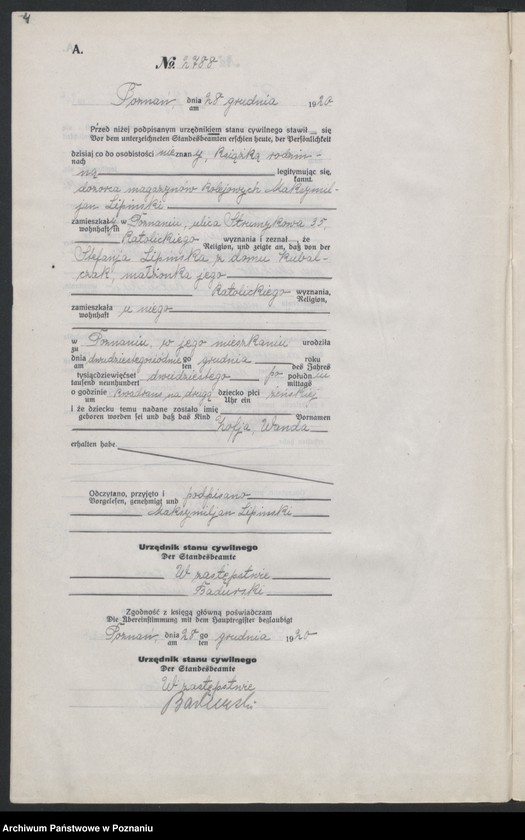 4
A.
№ 2788
Poznań, dnia 28 grudnia 1920
am
Przed niżej podpisanym urzędnikiem stanu cywilnego stawił się
Vor dem unterzeichneten Standesbeamten erschien heute, der Persönlichkeit
dzisiaj co do osobistości nieznany, książką rodzin-
nach
ną legitymując się,
kannt,
dozorca magazynów kolejowych Maksymil-
jan Lipiński
zamieszkały w Poznaniu, ulica Strumykowa 35,
wohnhaft in
katolickiego wyznania i zeznał, że
Religion, und zeigte an, daß von der
Stefanja Lipińska z domu Kubal-
czak, małżonka jego
katolickiego wyznania,
Religion,
zamieszkała u niego
wohnhaft
w Poznaniu, w jego mieszkaniu urodziła
zu
dnia dwudziestego go grudnia roku
am ten des Jahres
tysiącdziewięćset dwudziestego po połudn iu
tausend neunhundert mittags
o godzinie kwadrans na drugą dziecko płci żeńskiej
um Uhr ein
i że dziecku temu nadane zostało imię
geboren worden sei und daß das Kind Vornamen
Zofja, Wanda
erhalten habe
Odczytano, przyjęto i podpisano
Vorgelesen, genehmigt und
Maksymiljan Lipiński
Urzędnik stanu cywilnego
Der Standesbeamte
W zastępstwie
Zgodność z księgą główną poświadczam
Die Übereinstimmung mit dem Hauptregister beglaubigt
Poznań, dnia 28 go grudnia 1920
am ten
Urzędnik stanu cywilnego
Der Standesbeamte
W zastępstwie
Archiwum Państwowe w Poznaniu